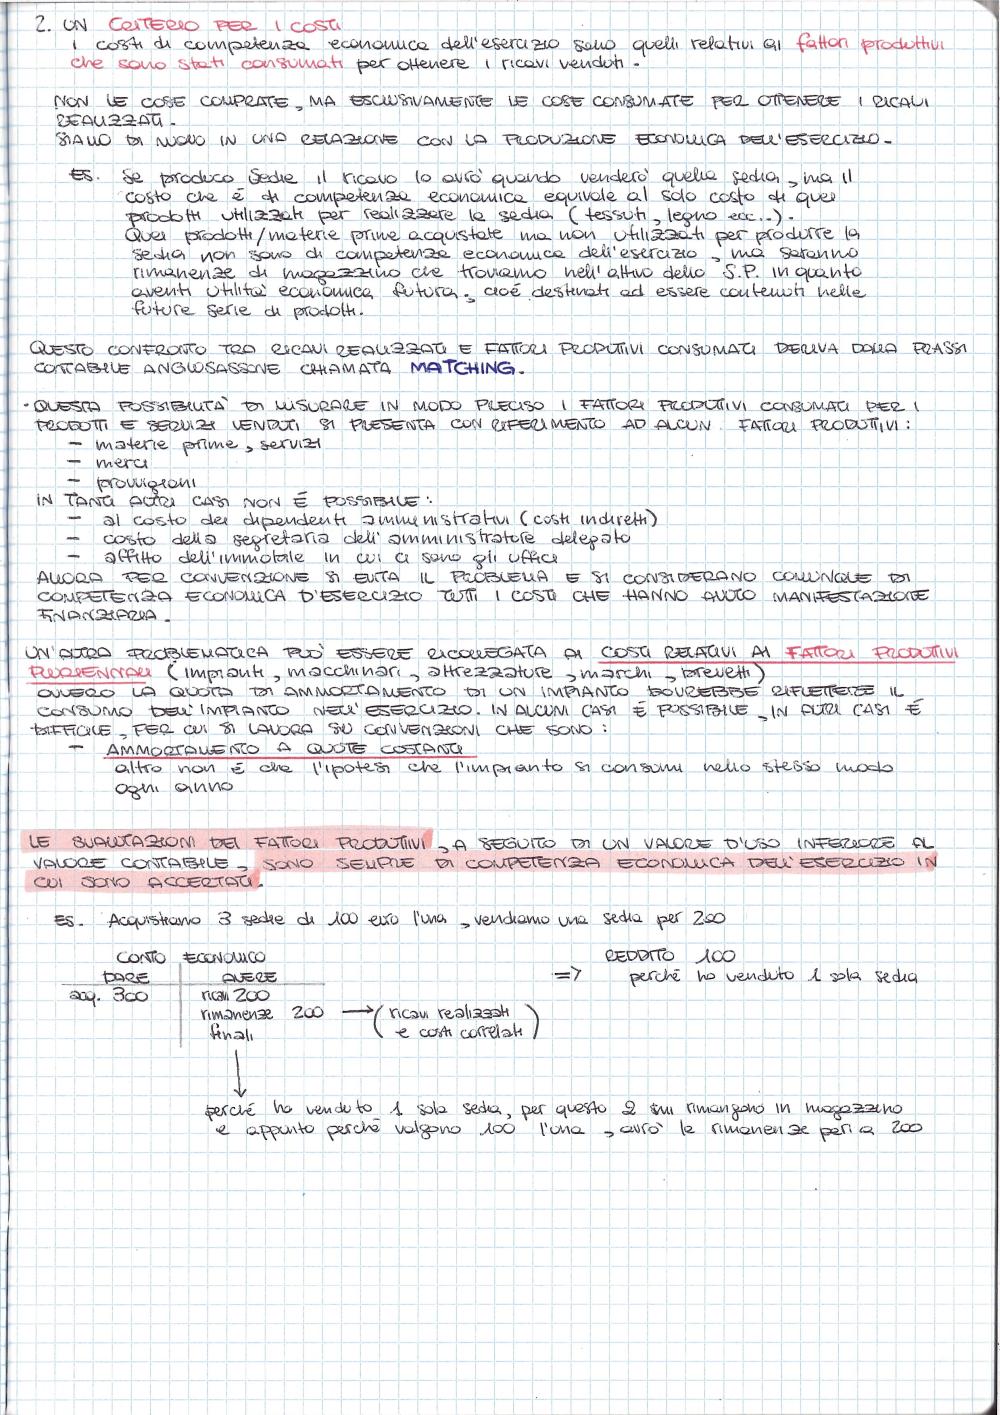 2. UN CRITERIO PER I COSTI
i costi di competenza economica dell'esercizio sono quelli relativi ai fattori produttivi
che sono stati consumati per ottenere i ricavi venduti.
NON LE COSE COMPRATE, MA ESCLUSIVAMENTE LE COSE CONSUMATE PER OTTENERE I RICAVI
REALIZZATI.
SIAMO DI NUOVO IN UNA RELAZIONE CON LA PRODUZIONE ECONOMICA DELL'ESERCIZIO.
ES. Se produco sedie il ricavo lo avrò quando venderò quella sedia, ma il
costo che è di competenza economica equivale al solo costo di quei
prodotti utilizzati per realizzare la sedia (tessuti, legno ecc..).
Quei prodotti/materie prime acquistate ma non utilizzati per produrre la
sedia non sono di competenza economica dell'esercizio, ma saranno
rimanenze di magazzino che troviamo nell'attivo dello S.P. in quanto
aventi utilità economica futura, cioè destinati ad essere contenuti nelle
future serie di prodotti.
QUESTO CONFRONTO TRA RICAVI REALIZZATI E FATTORI PRODUTTIVI CONSUMATI DERIVA DALLA PRASSI
CONTABILE ANGLOSASSONE CHIAMATA MATCHING.
• QUESTA POSSIBILITÀ DI MISURARE IN MODO PRECISO I FATTORI PRODUTTIVI CONSUMATI PER I
PRODOTTI E SERVIZI VENDUTI SI PRESENTA CON RIFERIMENTO AD ALCUNI FATTORI PRODUTTIVI:
– materie prime, servizi
– merci
– provvigioni
IN TANTI ALTRI CASI NON È POSSIBILE:
– al costo dei dipendenti amministrativi (costi indiretti)
– costo della segretaria dell'amministratore delegato
– affitto dell'immobile in cui ci sono gli uffici
ALLORA PER CONVENZIONE SI EVITA IL PROBLEMA E SI CONSIDERANO COMUNQUE DI
COMPETENZA ECONOMICA D'ESERCIZIO TUTTI I COSTI CHE HANNO AVUTO MANIFESTAZIONE
FINANZIARIA.
UN'ALTRA PROBLEMATICA PUÒ ESSERE RICOLLEGATA AI COSTI RELATIVI AI FATTORI PRODUTTIVI
PLURIENNALI (impianti, macchinari, attrezzature, marchi, brevetti)
OVVERO LA QUOTA DI AMMORTAMENTO DI UN IMPIANTO DOVREBBE RIFLETTERE IL
CONSUMO DELL'IMPIANTO NELL'ESERCIZIO. IN ALCUNI CASI È POSSIBILE, IN ALTRI CASI È
DIFFICILE, PER CUI SI LAVORA SU CONVENZIONI CHE SONO:
– AMMORTAMENTO A QUOTE COSTANTI
altro non è che l'ipotesi che l'impianto si consumi nello stesso modo
ogni anno
LE SVALUTAZIONI DEI FATTORI PRODUTTIVI, A SEGUITO DI UN VALORE D'USO INFERIORE AL
VALORE CONTABILE, SONO SEMPRE DI COMPETENZA ECONOMICA DELL'ESERCIZIO IN
CUI SONO ACCERTATI.
ES. Acquistiamo 3 sedie di 100 euro l'una, vendiamo una sedia per 200
CONTO ECONOMICO REDDITO 100
DARE AVERE => perché ho venduto 1 sola sedia
acq. 300 ricavi 200
rimanenze 200 → (ricavi realizzati
finali e costi correlati)
perché ho venduto 1 sola sedia, per questo 2 rimangono in magazzino
e appunto perché valgono 100 l'una, avrò le rimanenze pari a 200